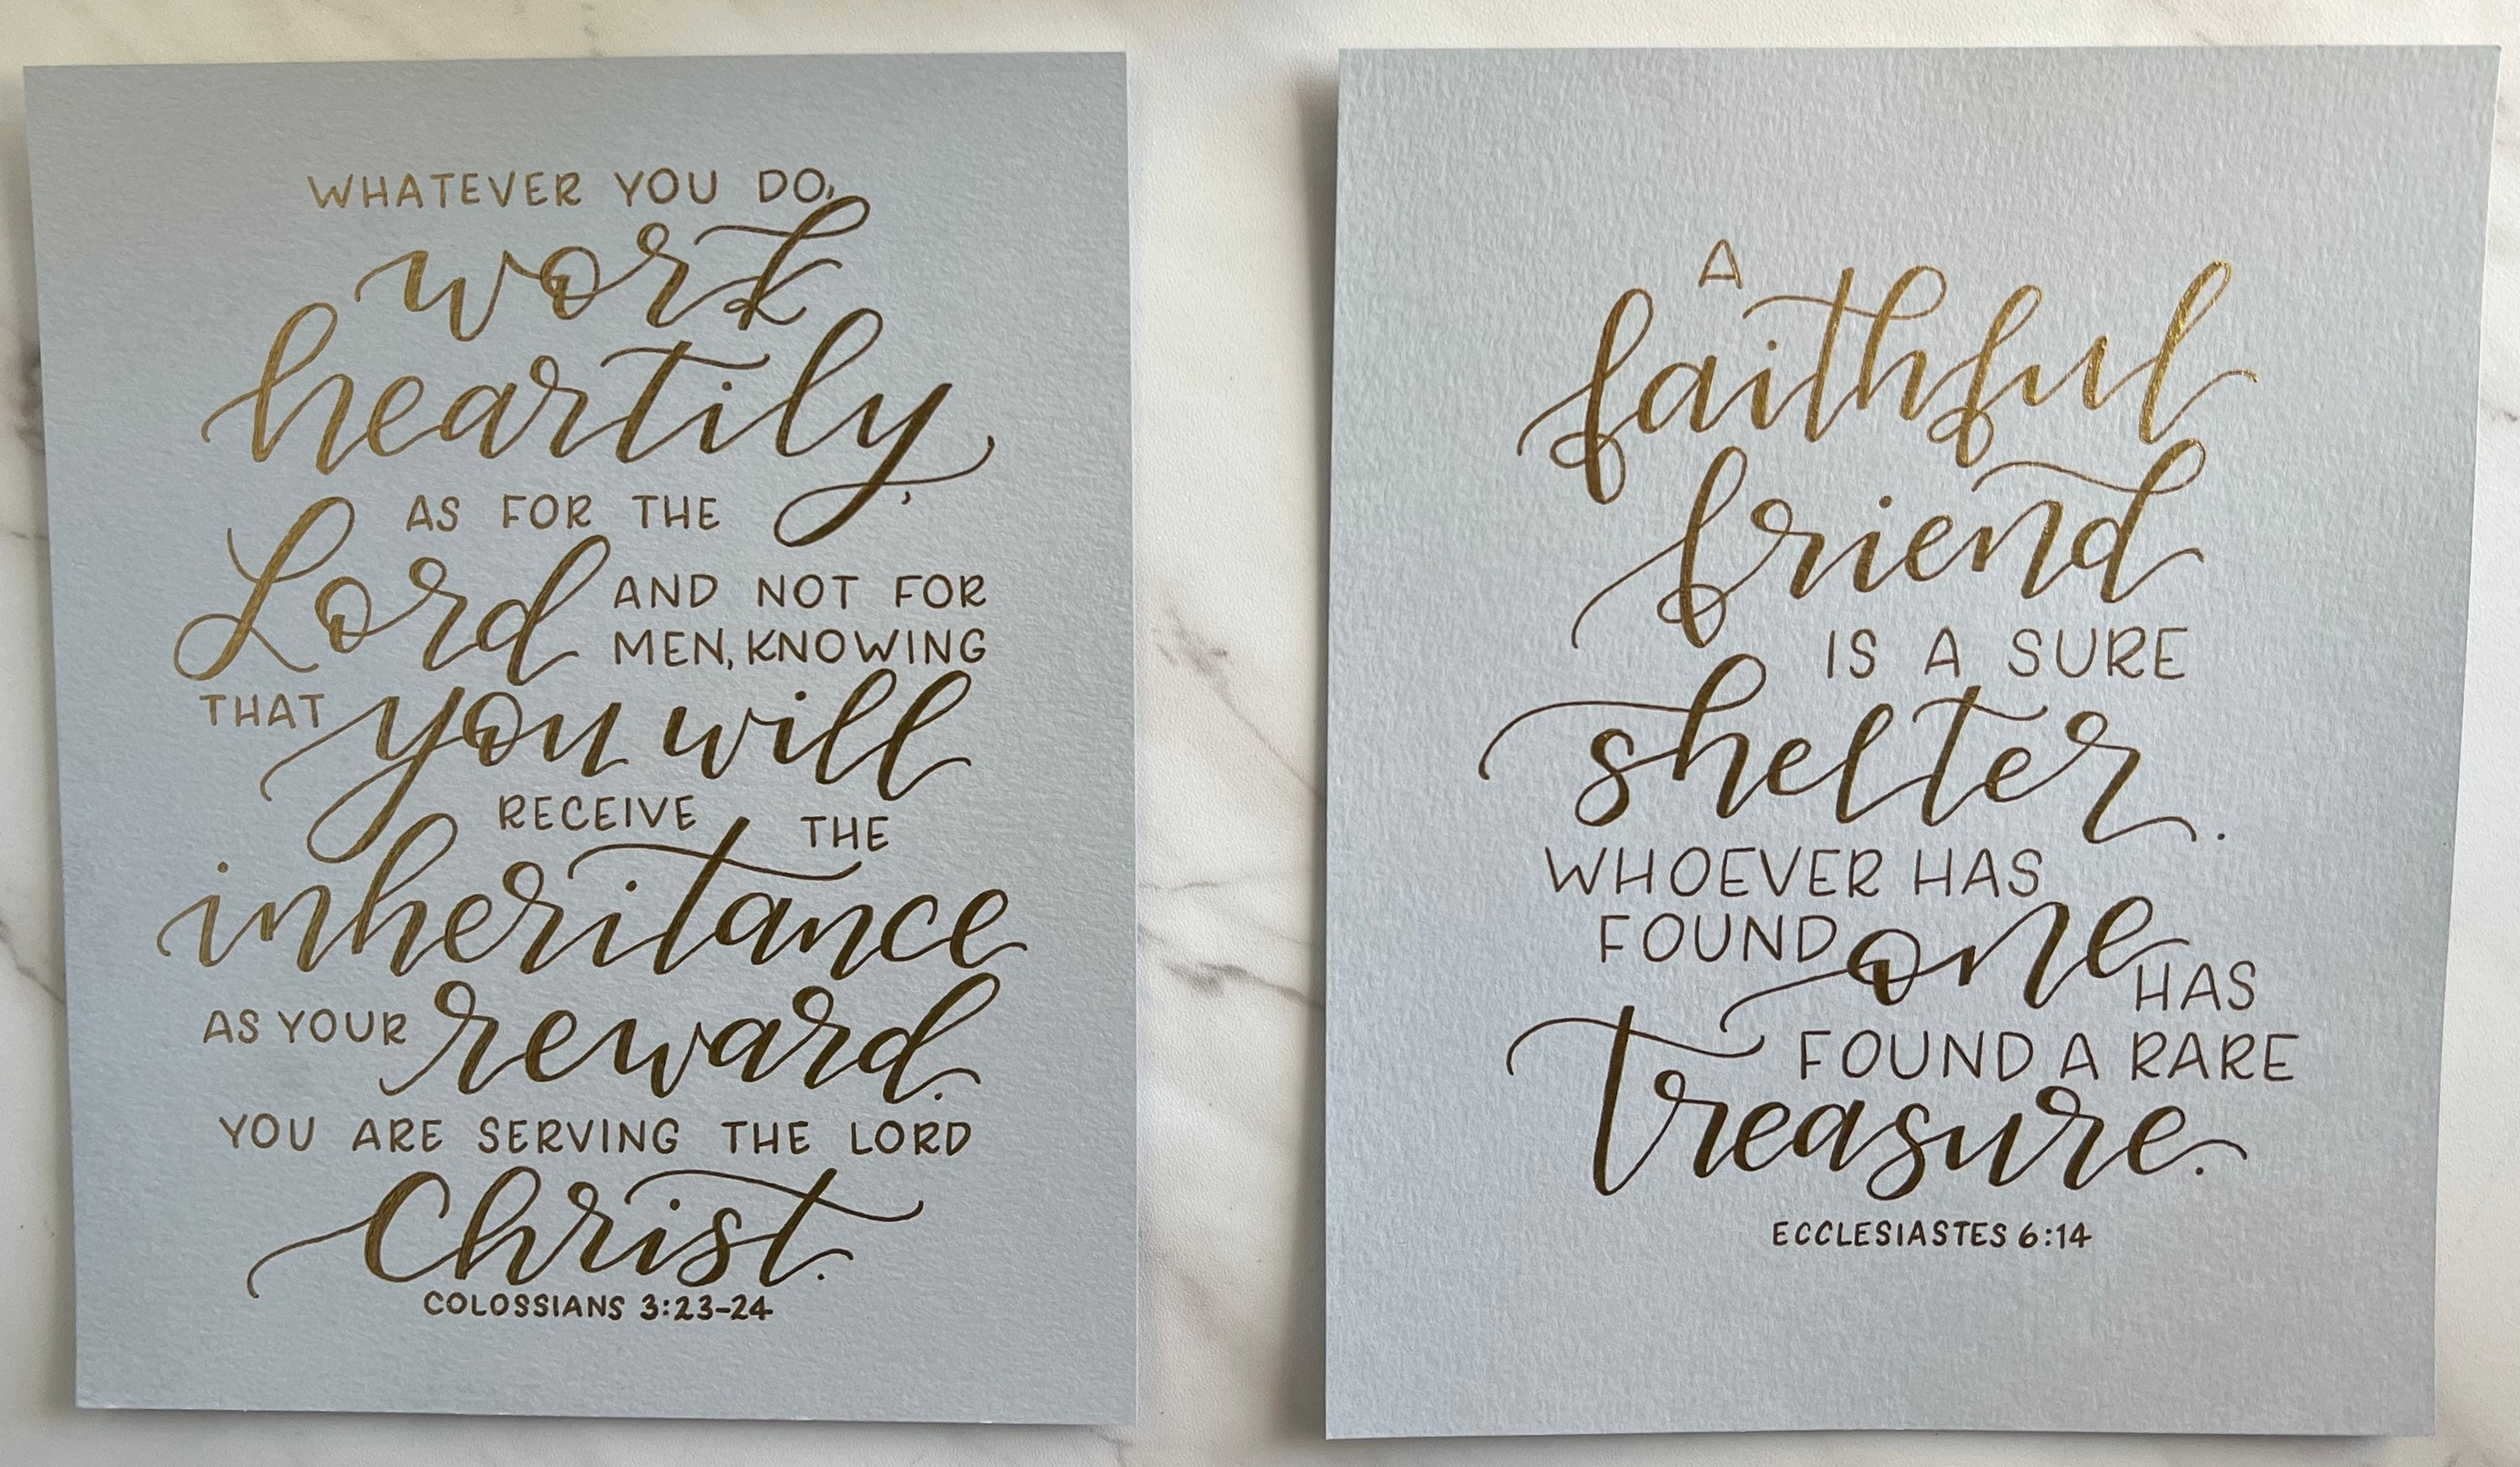 WHATEVER YOU DO,
work
heartily,
AS FOR THE
Lord AND NOT FOR
MEN, KNOWING
THAT you will
RECEIVE THE
inheritance
AS YOUR reward.
YOU ARE SERVING THE LORD
Christ.
COLOSSIANS 3:23-24
A
faithful
friend
IS A SURE
shelter.
WHOEVER HAS
FOUND one HAS
FOUND A RARE
treasure.
ECCLESIASTES 6:14